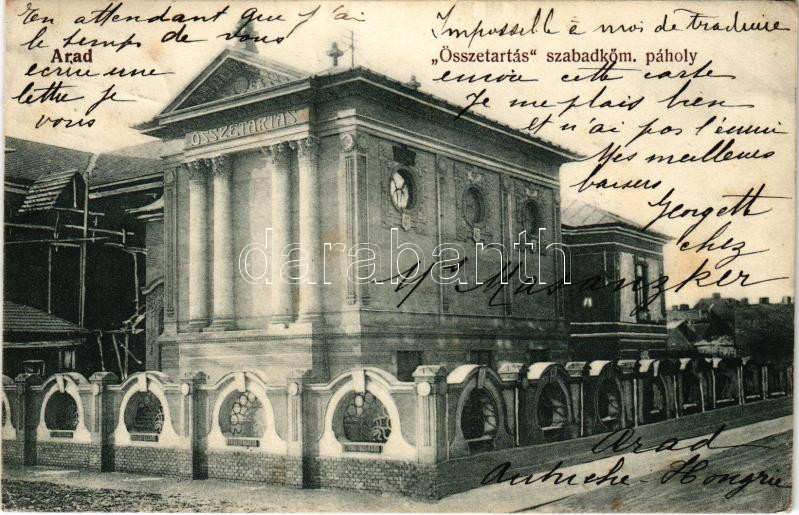 En attendant que j'ai
le temps de vous
ecrire une
lettre je
vous
Arad
Impossible à moi de traduire
"Összetartás" szabadkőm. páholy
encore cette carte
Je me plais bien
et n'ai pas l'ennui
Mes meilleures
baisers
Georgette
chez
Mr Musanzker
ÖSSZETARTÁS
darabanth
Arad
Autriche-Hongrie